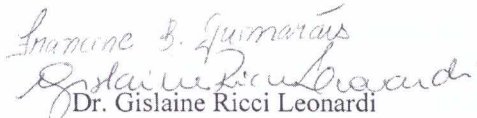 Francine B. Guimarães
Gislaine Ricci Leonardi
Dr. Gislaine Ricci Leonardi